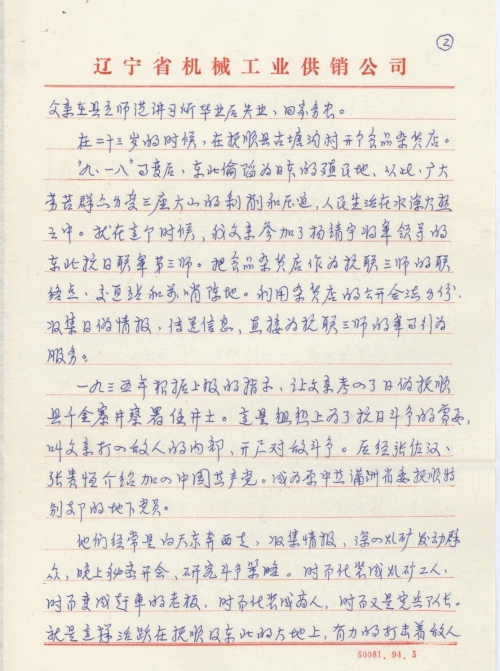 ②
辽宁省机械工业供销公司
父亲在县立师范讲习所毕业后失业，回家务农。
在二十三岁的时候，在抚顺县古塘沟村开个食品杂货店。
"九·一八"事变后，东北偷陷为日本的殖民地，从此，广大
劳苦群众力受三座大山的剥削和压迫，人民生活在水深火热
之中。就在这个时候，我父亲参加了杨靖宇将军领导的
东北抗日联军第三师。把食品杂货店作为抗联三师的联
络点、交通站和前哨阵地。利用杂货店的公开合法身份，
收集日伪情报，传递信息，直接为抗联三师的军事行为
服务。
一九三五年根据上级的指示，让父亲考入了日伪抚顺
县千金寨警察署任井士。这是组织上为了抗日斗争的需要，
叫父亲打入敌人的内部，开展对敌斗争。后经张佐汉、
张贵恒介绍加入中国共产党。成为原中共满洲省委抚顺特
别支部的地下党员。
他们经常是白天东奔西走，收集情报，深入煤矿发动群
众，晚上秘密开会，研究斗争策略。时而化装成煤矿工人，
时而变成赶車的老板，时而化装成商人，时而又是宪兵队长。
就是这样活跃在抚顺及东北的大地上，有力的打击着敌人
50081.94.3